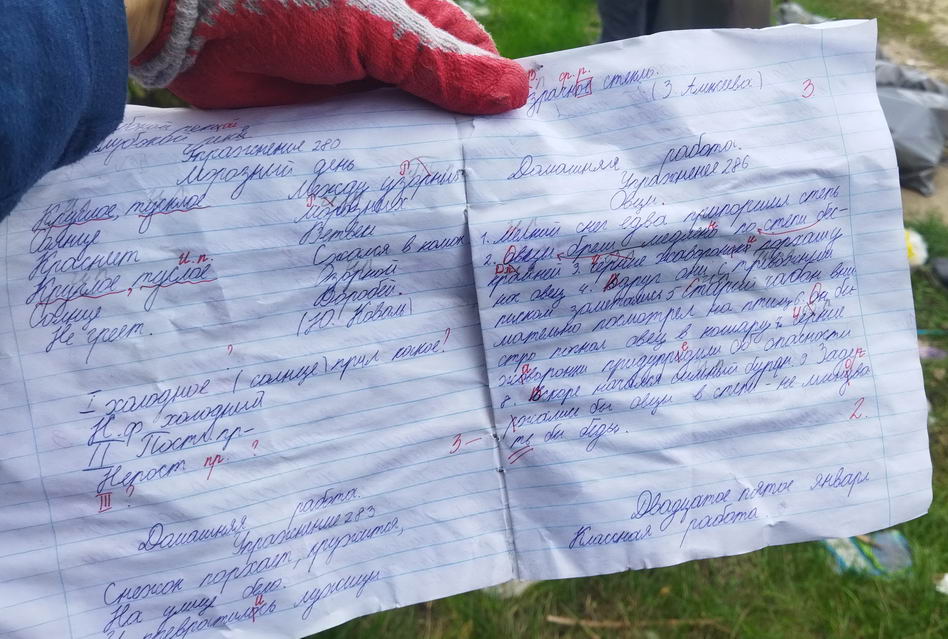 Упражнение 280
Морозный день
Круглое, тусклое
Солнце
Краснеет
и.п.
Круглое, туслое
Солнце
Не греет.
Между узорных
Морозных
Ветвей
Сжался в комок
Зоркой
Воробей.
(Ю. Коваль)
?
I холодное (солнце) прил какое?
Н.ф холодный
II Пост. пр-
Непост пр. ?
III ?
3-
Домашняя работа.
Упражнение 283
Снежок порхает, кружится,
На улице бело.
И превратились лужицы
стекло.
3
Домашняя работа.
Упражнение 286
Овцы.
1. Мелкий снег едва припорошил степь
2. Овцы брели медленно по степи бес-
крайней 3. Черние жаворонки
них овец 4. Вдруг они с тревожным
писком заметались 5 Старый чабан вни
мательно посмотрел на птиц 6. Он бы
стро погнал овец в кошару 7 Черние
жаворонки придупредили об опасности
8. Вскоре начался сильный буран. 9 Заде
ржались бы овцы в степи - не миновд
ть бы беды.
2.
Двадцатое пятое январь
Классная работа.